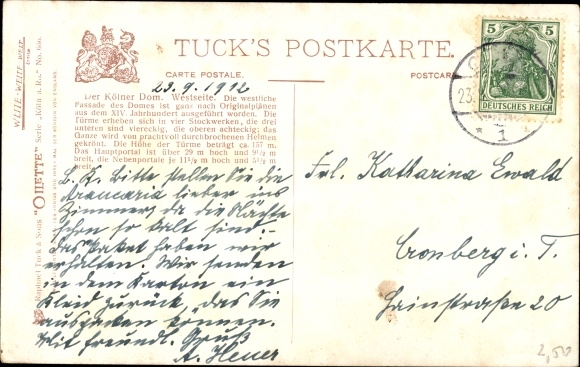 TUCK'S POSTKARTE.
CARTE POSTALE.
POSTCARD
WEITE-WEITE-WELT
Raphael Tuck & Sons "OILETTE" Serie „Köln a. R." No. 600.
23.9.1912
Der Kölner Dom. Westseite. Die westliche
Passade des Domes ist ganz nach Originalplänen
aus dem XIV Jahrhundert ausgeführt worden. Die
Türme erheben sich in vier Stockwerken, die drei
unteren sind viereckig, die oberen achteckig; das
Ganze wird von prachtvoll durchbrochenen Helmen
gekrönt. Die Höhe der Türme beträgt ca. 157 m.
Das Hauptportal ist über 29 m hoch und 9½ m
breit, die Nebenportale je 11½ m hoch und 5½ m
breit.
L. K. Bitte stellen Sie die
Araucaria lieber ins
Zimmer, da die Nächte
schon so kalt sind.-
das Paket haben wir
erhalten. Wir senden
in dem Karton ein
Kleid zurück, das Sie
auspacken können.
Mit freundl. Gruß
A. Heuer
5 5
DEUTSCHES REICH
23.
* 1
Frl. Katharina Ewald
Cronberg i. T.
Hainstraße 20
2,50